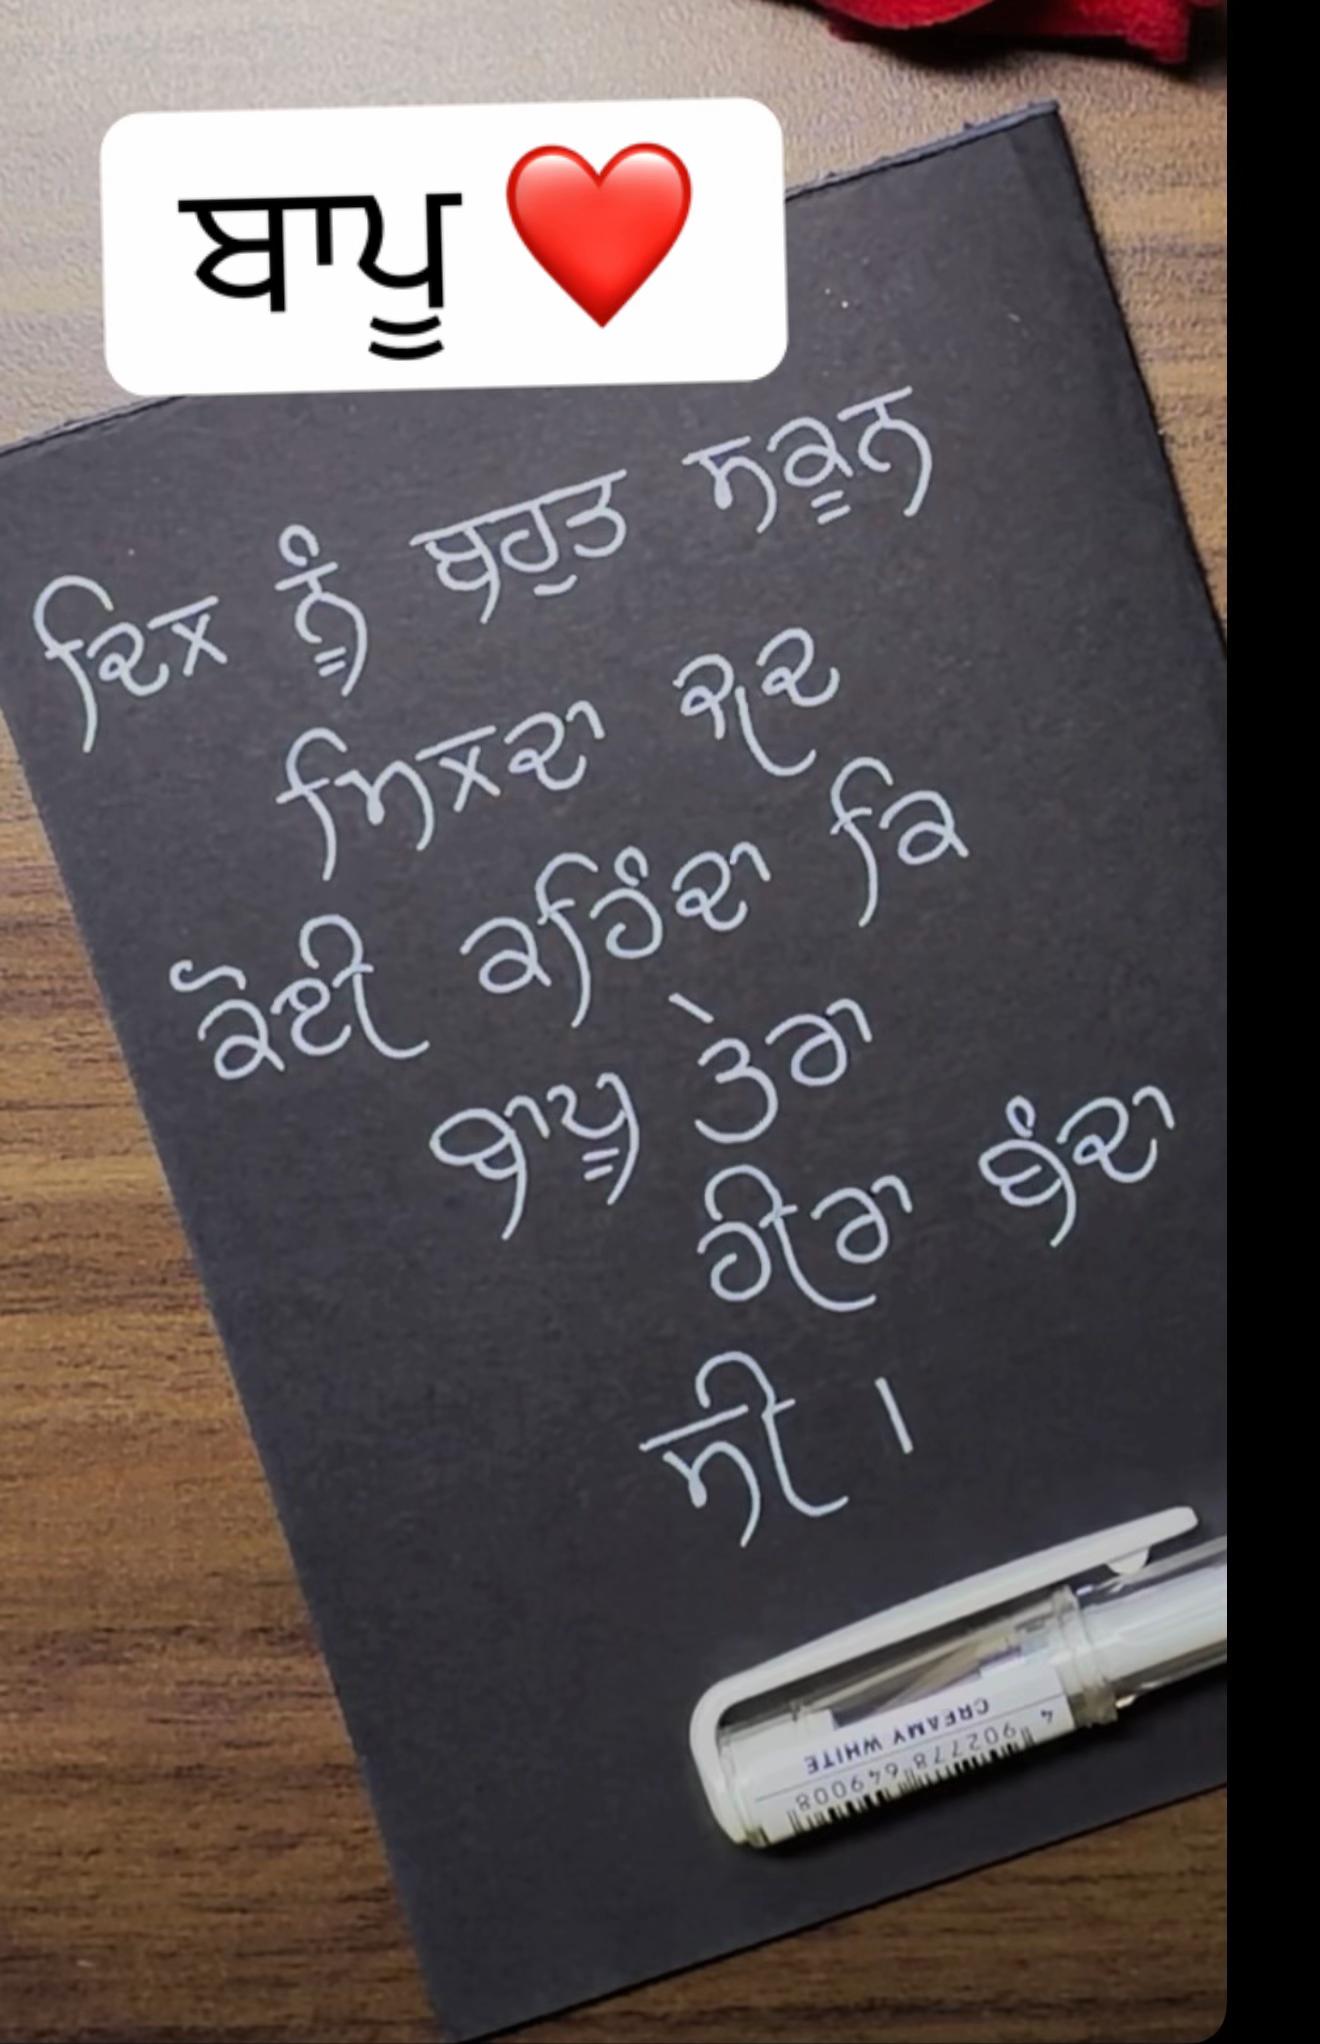 ਬਾਪੂ ❤️
ਦਿਲ ਨੂੰ ਬਹੁਤ ਸਕੂਨ
ਮਿਲਦਾ ਜਦ
ਕੋਈ ਕਹਿੰਦਾ ਕਿ
ਬਾਪੂ ਤੇਰਾ
ਹੀਰਾ ਬੰਦਾ
ਸੀ ।
CREAMY WHITE
4 902778 649008